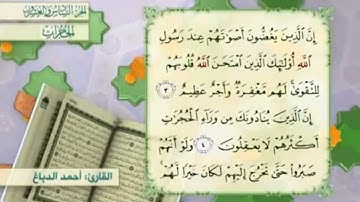 الجزء السادس والعشرون
الحجرات
إِنَّ الَّذِينَ يَغُضُّونَ أَصْوَاتَهُمْ عِندَ رَسُولِ
اللَّهِ أُوْلَئِكَ الَّذِينَ امْتَحَنَ اللَّهُ قُلُوبَهُمْ
لِلتَّقْوَى لَهُم مَّغْفِرَةٌ وَأَجْرٌ عَظِيمٌ ٣
إِنَّ الَّذِينَ يُنَادُونَكَ مِن وَرَاءِ الْحُجُرَاتِ
أَكْثَرُهُمْ لَا يَعْقِلُونَ ٤ وَلَوْ أَنَّهُمْ
صَبَرُوا حَتَّى تَخْرُجَ إِلَيْهِمْ لَكَانَ خَيْرًا لَّهُمْ
القارئ: أحمد الدباغ